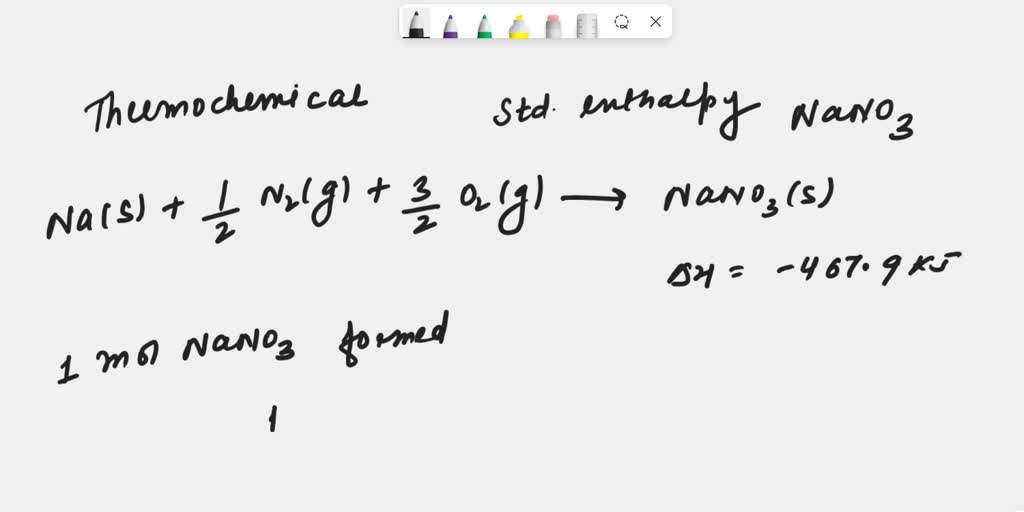 Thermochemical Std. enthalpy NaNO3
Na(s) + 1/2 N2(g) + 3/2 O2(g) → NaNO3(s)
ΔH = -467.9 KJ
1 mol NaNO3 formed
1